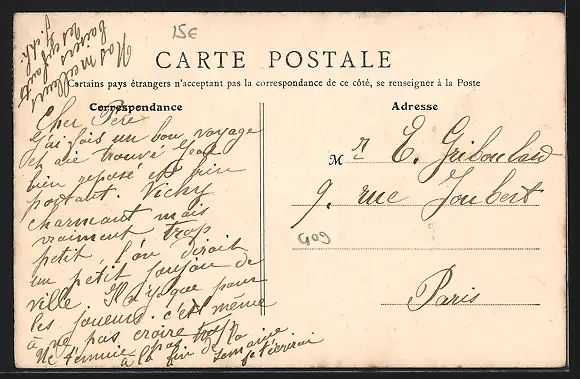 15€
CARTE POSTALE
Certains pays étrangers n'acceptant pas la correspondance de ce côté, se renseigner à la Poste
Correspondance
Cher Père
J'ai fais un bon voyage
et aie trouvé
bien reposé et bien
portant. Vichy
charmant mais
vraiment trop
petit, l'on dirait
un petit joujou de
ville Il n'y a que pour
les joueurs. c'est même
à ne pas croire
Ne t'ennuie pas trop
à la fin de la semaine
je t'écrirai
Nos meilleurs
baisers
Adresse
M r E. Griboulard
9. rue Joubert
G09
Paris